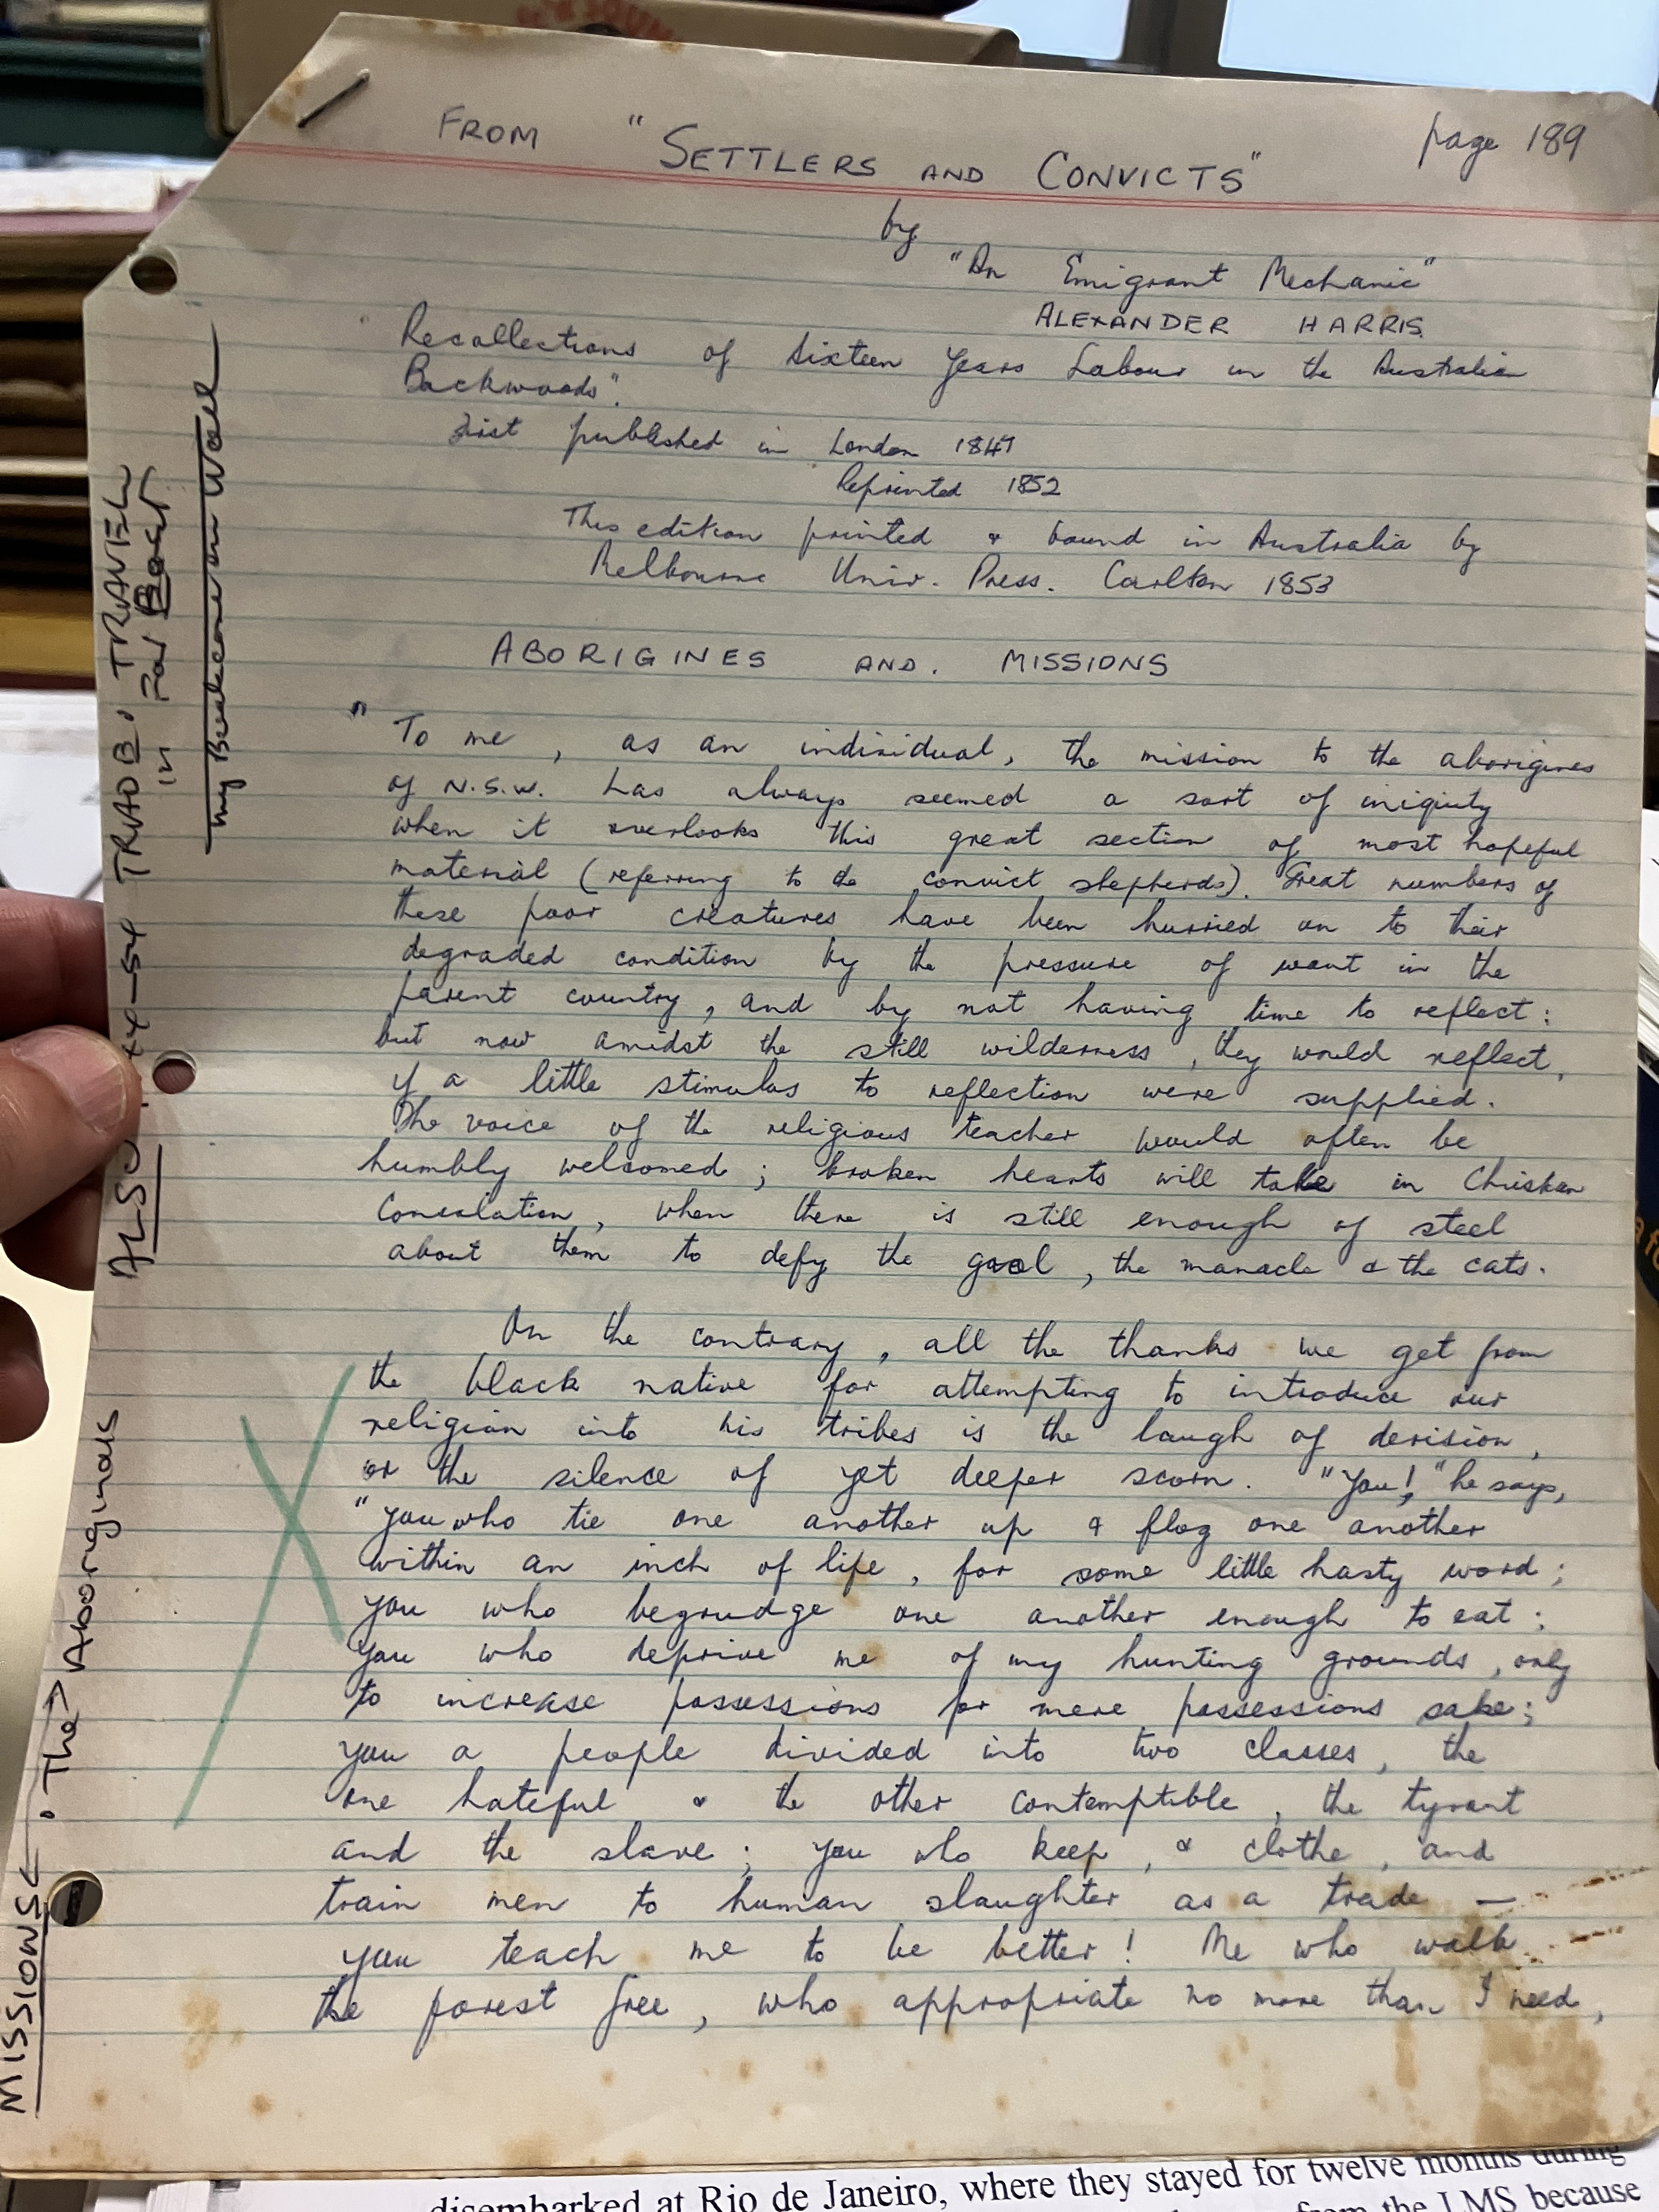 FROM "SETTLERS AND CONVICTS" page 189
by
"An Emigrant Mechanic"
ALEXANDER HARRIS.
"Recollections of Sixteen Years Labour in the Australian
Backwoods".
First published in London 1847
Reprinted 1852
This edition printed & bound in Australia by
Melbourne Univ. Press. Carlton 1853
ABORIGINES AND. MISSIONS
" To me, as an individual, the mission to the aborigines
of N.S.W. has always seemed a sort of iniquity
when it overlooks this great section of most hopeful
material (referring to the convict shepherds). Great numbers of
these poor creatures have been hurried on to their
degraded condition by the pressure of want in the
parent country, and by not having time to reflect:
but now amidst the still wilderness, they would reflect,
if a little stimulus to reflection were supplied.
The voice of the religious teacher would often be
humbly welcomed; broken hearts will take in Christian
Consolation, when there is still enough of steel
about them to defy the gaol, the manacle & the cats.
On the contrary, all the thanks we get from
the black native for attempting to introduce our
religion into his tribes is the laugh of derision,
or the silence of yet deeper scorn. "You!," he says,
"you who tie one another up & flog one another
within an inch of life, for some little hasty word;
you who begrudge one another enough to eat;
you who deprive me of my hunting grounds, only
to increase possessions for mere possessions sake;
you a people divided into two classes, the
one hateful & the other contemptible, the tyrant
and the slave; you who keep, & clothe, and
train men to human slaughter as a trade —
you teach me to be better! Me who walk
the forest free, who appropriate no more than I need,
MISSIONS ←. The → Aboriginals
ALSO
TRADB. TRAVEL
in Far East
my on Wall
disembarked at Rio de Janeiro, where they stayed for twelve months during
from the LMS because